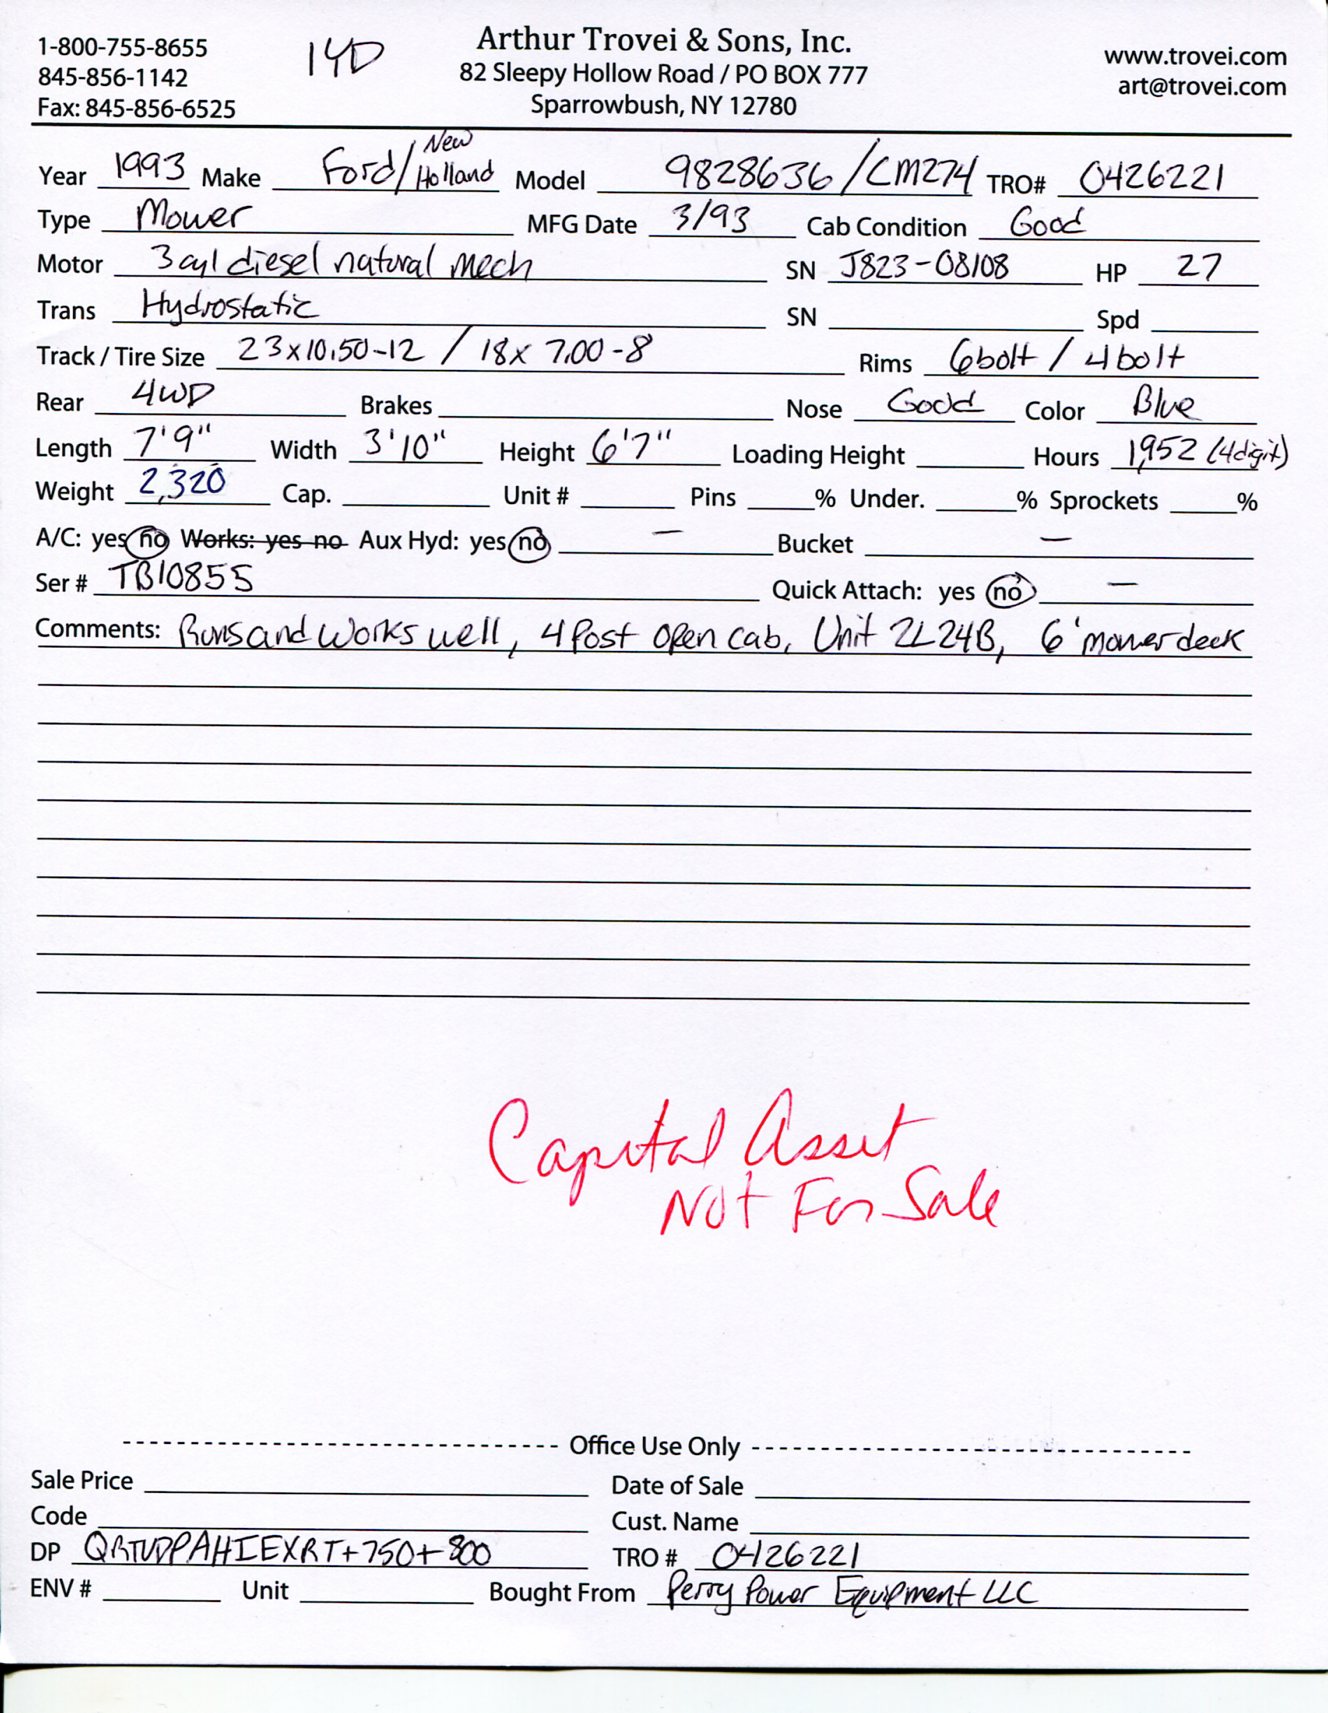 1-800-755-8655
845-856-1142
Fax: 845-856-6525
14D
Arthur Trovei & Sons, Inc.
82 Sleepy Hollow Road / PO BOX 777
Sparrowbush, NY 12780
www.trovei.com
art@trovei.com
Year 1993 Make Ford/New Holland Model 9828636/CM274 TRO# 0426221
Type Mower MFG Date 3/93 Cab Condition Good
Motor 3 cyl diesel natural mech SN J823-08108 HP 27
Trans Hydrostatic SN Spd
Track / Tire Size 23x10.50-12 / 18x 7.00-8 Rims 6bolt / 4bolt
Rear 4WD Brakes Nose Good Color Blue
Length 7'9" Width 3'10" Height 6'7" Loading Height Hours 1,952 (4digit)
Weight 2,320 Cap. Unit # Pins % Under. % Sprockets %
A/C: yes no Works: yes no Aux Hyd: yes no — Bucket —
Ser # TB10855 Quick Attach: yes no —
Comments: Runs and works well, 4 Post open cab, Unit 2L24B, 6' mower deck
Capital Asset
Not For Sale
Office Use Only
Sale Price Date of Sale
Code Cust. Name
DP QRTVDPAHIEXRT+750+800 TRO # 0426221
ENV # Unit Bought From Perry Power Equipment LLC